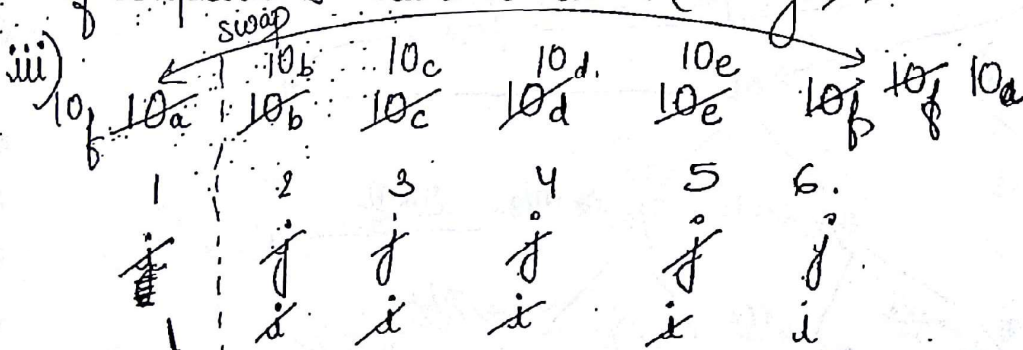 swap
iii) 10b 10c 10d. 10e
10f 10a 10b 10c 10d 10e 10f 10f 10a
1 2 3 4 5 6.
i j j j j j
i i i i i